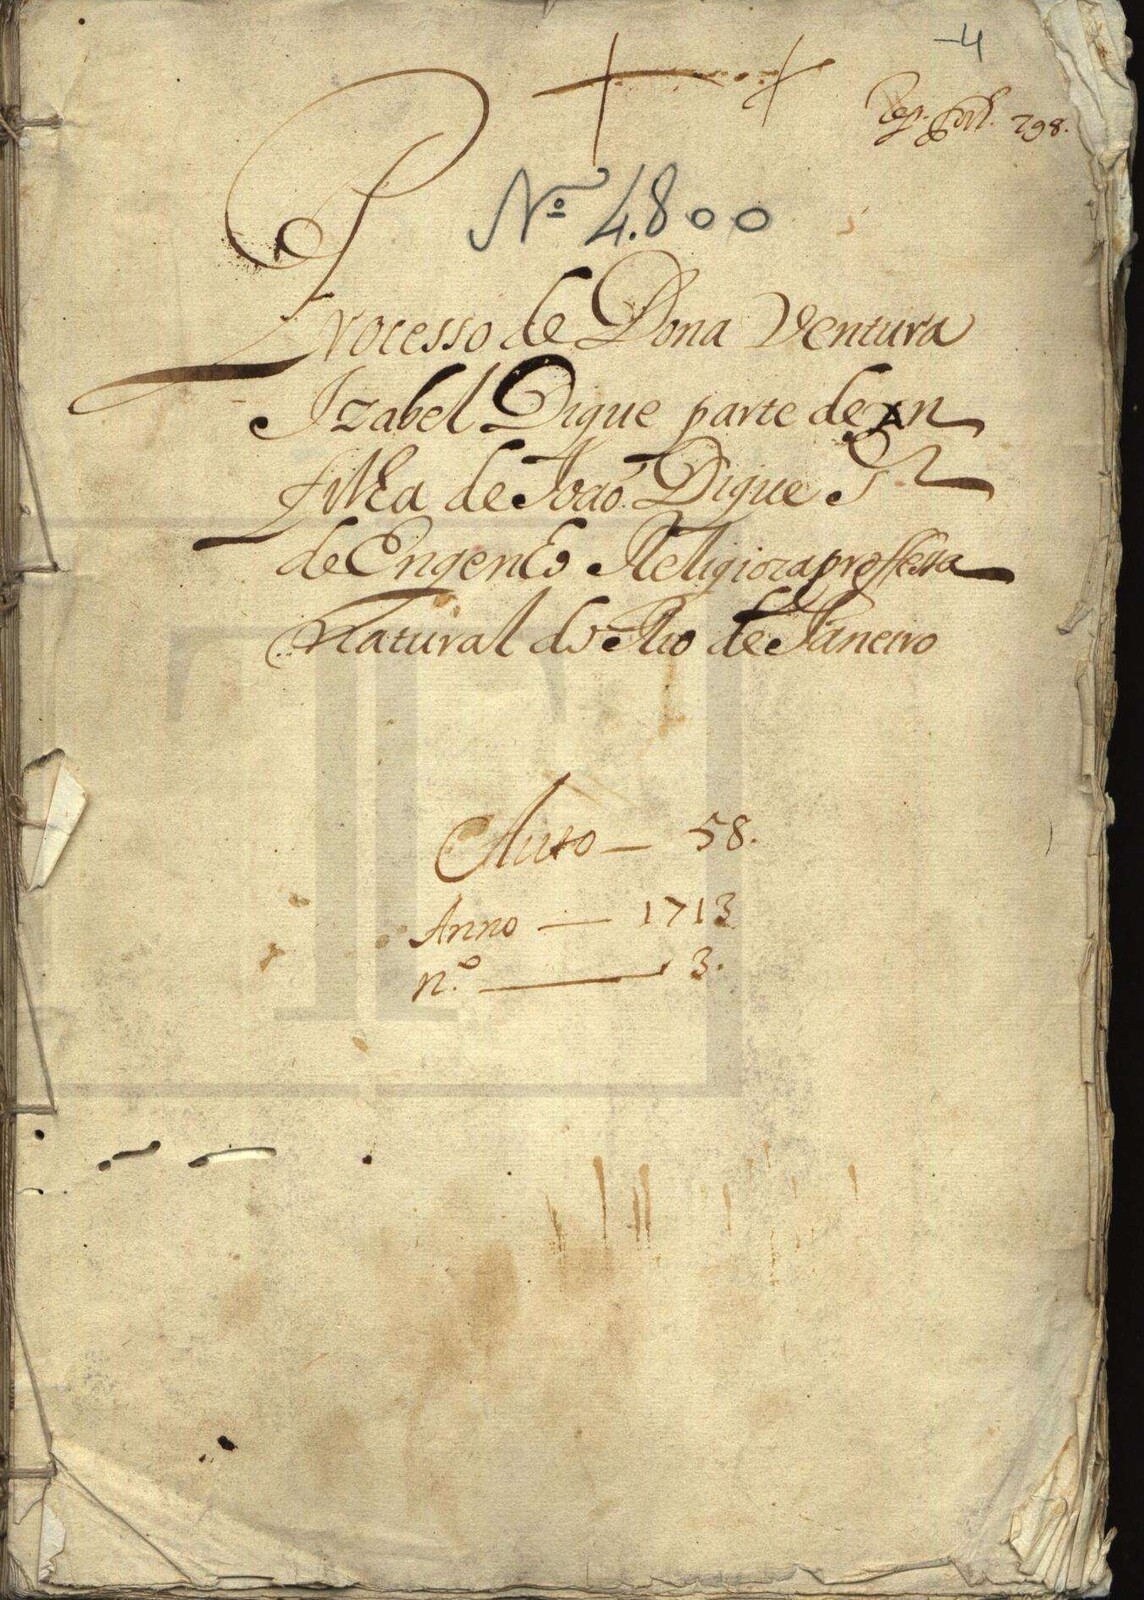 4
Reg. fol. 298.
Nº 4.800
Processo de Dona Ventura
Izabel Dique parte de xn
filha de João Dique Sr
de Engenho Religioza professa
natural do Rio de Janeiro
Auto — 58.
Anno — 1713
n.º — 3.